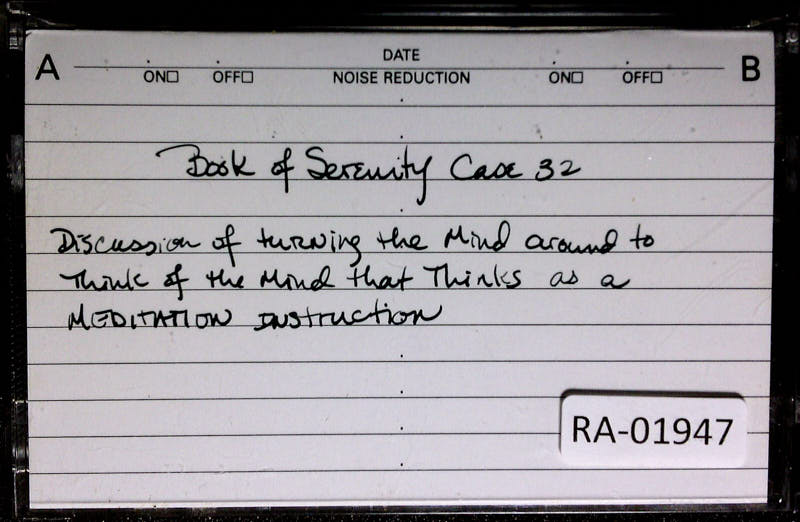 DATE
A ON☐ OFF☐ NOISE REDUCTION ON☐ OFF☐ B
Book of Serenity Case 32
Discussion of turning the Mind around to
Think of the Mind that Thinks as a
MEDITATION INStruction
RA-01947